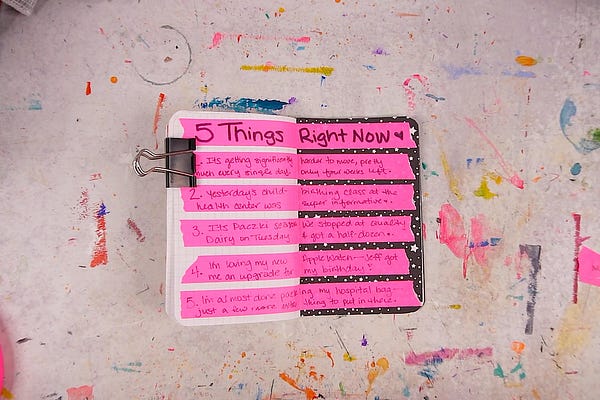 5 Things Right Now
1. It's getting significantly harder to move, pretty
much every single day. only four weeks left.
2. Yesterday's child- birthing class at the
health center was super informative.
3. It's Paczki season We stopped at Quality
Dairy on Tuesday & got a half-dozen.
4. I'm loving my new Apple Watch--Jeff got
me an upgrade for my birthday!
5. I'm almost done packing my hospital bag--
just a few more thing to put in there.